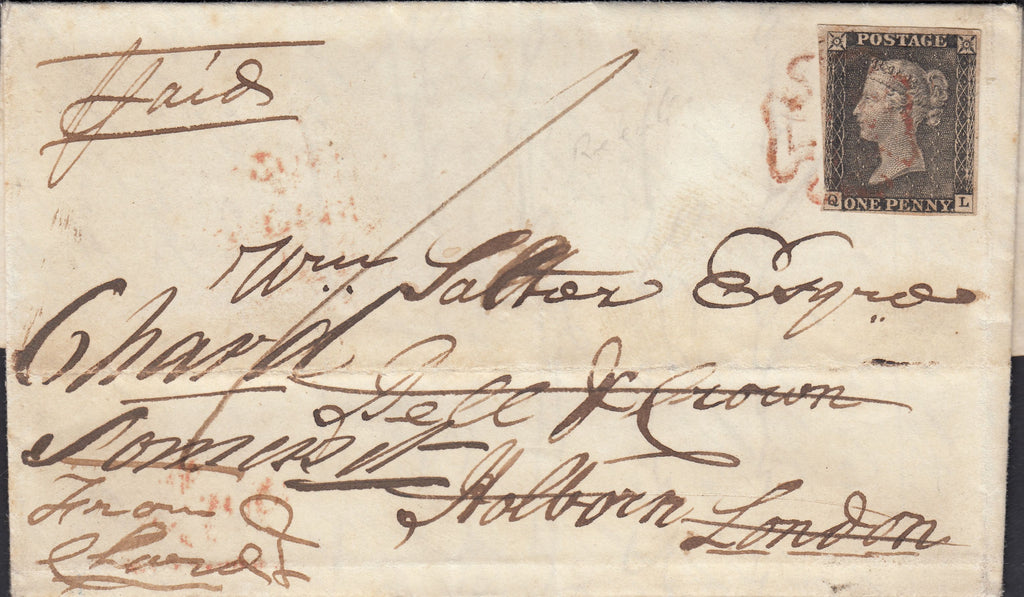 Paid
POSTAGE
Q ONE PENNY. L
Wm Salter Esqre
Chard
Bell & Crown
Somerset
Holborn London
From
Chard